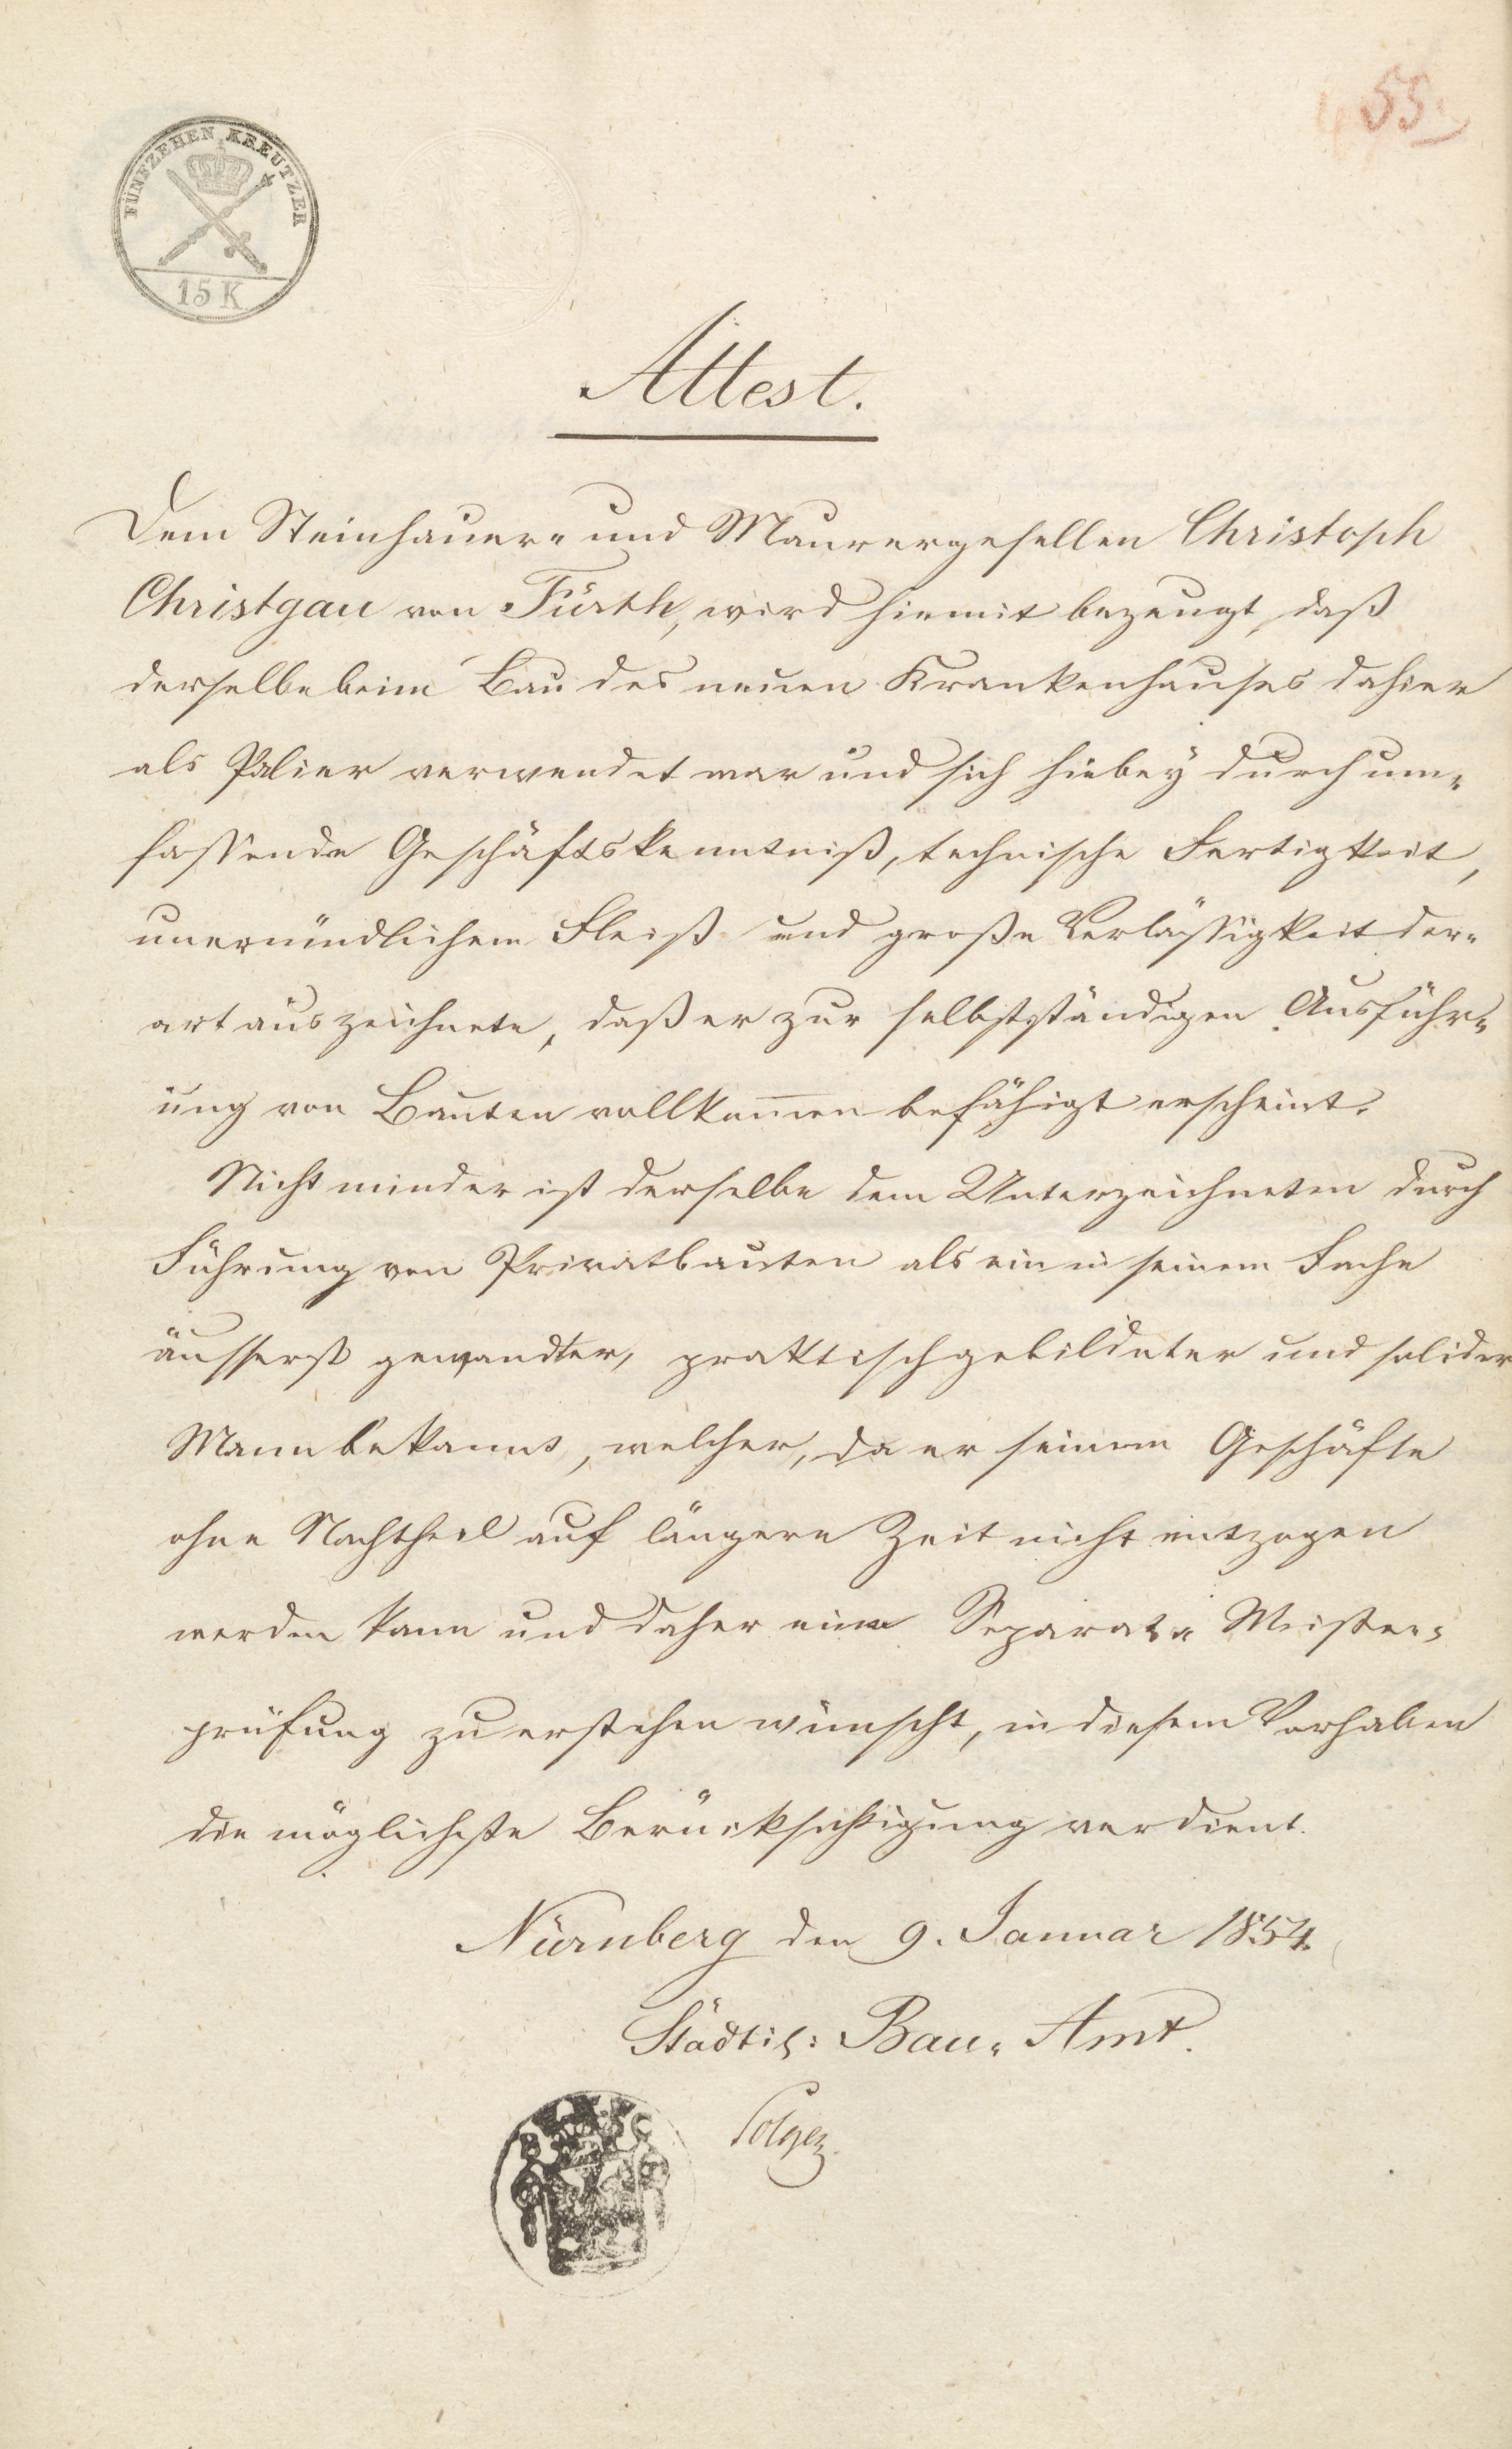 55.
FÜNFZEHEN KREUTZER
15 K
Attest.
Dem Steinhauer- und Maurergesellen Christoph
Christgau von Fürth, wird hiemit bezeugt, daß
derselbe beim Bau des neuen Krankenhauses dahier
als Palier verwendet war und sich hiebey durch um-
fassende Geschäftskenntniß, technische Fertigkeit,
unermüdlichem Fleiß und große Verlässigkeit der-
art auszeichnete, daß er zur selbstständigen Ausführ-
ung von Bauten vollkom̅en befähigt erscheint.
Nicht minder ist derselbe dem Unterzeichneten durch
Führung von Privatbauten als ein in seinem Fache
äusserst gewandter, praktisch gebildeter und solider
Mann bekannt, welcher, da er seinem Geschäfte
ohne Nachtheil auf längere Zeit nicht entzogen
werden kann und daher eine Separat- Meister-
prüfung zu erstehen wünscht, in diesem Vorhaben
die möglichste Berücksichtigung verdient.
Nürnberg den 9. Januar 1854.
Städtis: Bau- Amt.
Solger